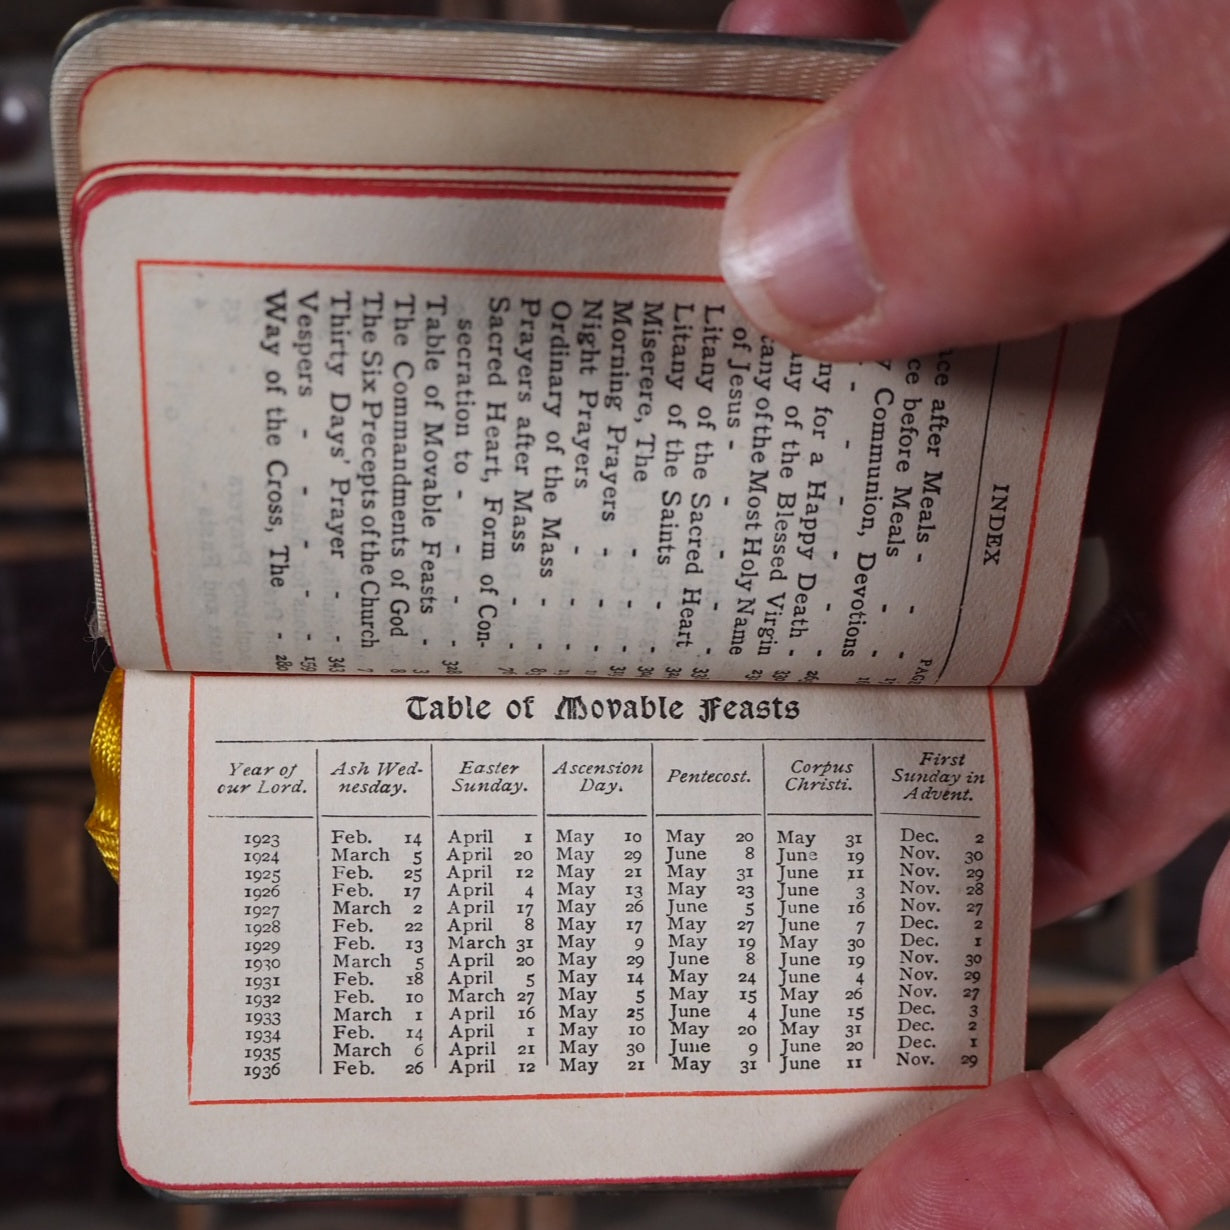 INDEX
PAG
ce after Meals -
ce before Meals - -
y Communion, Devotions
- - - - -
ny for a Happy Death -
any of the Blessed Virgin
tany of the Most Holy Name
of Jesus - - -
Litany of the Sacred Heart
Litany of the Saints -
Miserere, The - -
Morning Prayers - -
Night Prayers - -
Ordinary of the Mass -
Prayers after Mass -
Sacred Heart, Form of Con-
secration to - - - 328
Table of Movable Feasts - 3
The Commandments of God 8
The Six Precepts of the Church 7
Thirty Days' Prayer - - 343
Vespers - - - - 159
Way of the Cross, The - 280
Table of Movable Feasts
Year of our Lord. Ash Wed-nesday. Easter Sunday. Ascension Day. Pentecost. Corpus Christi. First Sunday in Advent.
1923 Feb. 14 April 1 May 10 May 20 May 31 Dec. 2
1924 March 5 April 20 May 29 June 8 June 19 Nov. 30
1925 Feb. 25 April 12 May 21 May 31 June 11 Nov. 29
1926 Feb. 17 April 4 May 13 May 23 June 3 Nov. 28
1927 March 2 April 17 May 26 June 5 June 16 Nov. 27
1928 Feb. 22 April 8 May 17 May 27 June 7 Dec. 2
1929 Feb. 13 March 31 May 9 May 19 May 30 Dec. 1
1930 March 5 April 20 May 29 June 8 June 19 Nov. 30
1931 Feb. 18 April 5 May 14 May 24 June 4 Nov. 29
1932 Feb. 10 March 27 May 5 May 15 May 26 Nov. 27
1933 March 1 April 16 May 25 June 4 June 15 Dec. 3
1934 Feb. 14 April 1 May 10 May 20 May 31 Dec. 2
1935 March 6 April 21 May 30 June 9 June 20 Dec. 1
1936 Feb. 26 April 12 May 21 May 31 June 11 Nov. 29